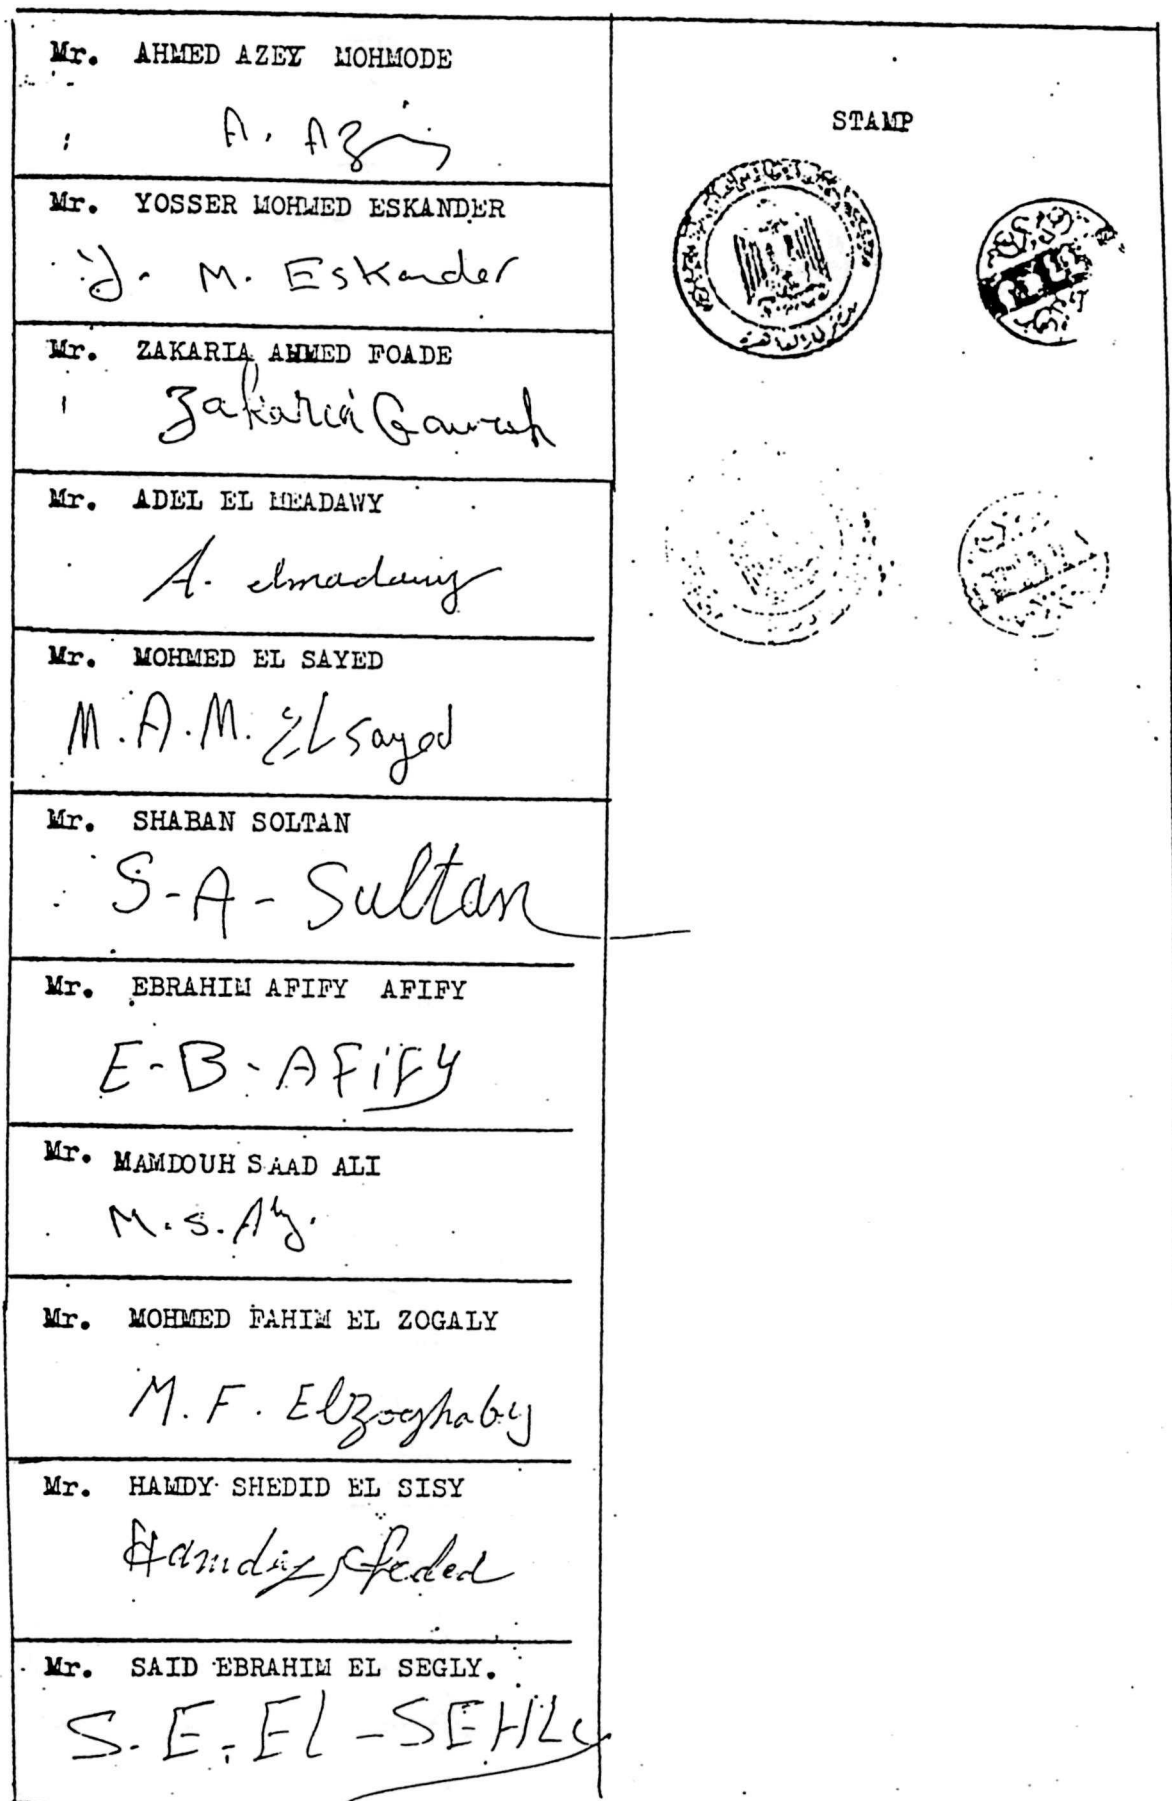 Mr. AHMED AZEY MOHMODE
A. Azi
STAMP
Mr. YOSSER MOHMED ESKANDER
Y. M. Eskander
Mr. ZAKARIA AHMED FOADE
Zakaria
Mr. ADEL EL MEADAWY
A. elmadawy
Mr. MOHMED EL SAYED
M.A.M. ELsayed
Mr. SHABAN SOLTAN
S-A-Sultan
Mr. EBRAHIM AFIFY AFIFY
E-B-AFiFY
Mr. MAMDOUH SAAD ALI
M.S.Aly.
Mr. MOHMED FAHIM EL ZOGALY
M. F. Elzoghaby
Mr. HAMDY SHEDID EL SISY
Hamdy
Mr. SAID EBRAHIM EL SEGLY.
S.E.El-SEHLy